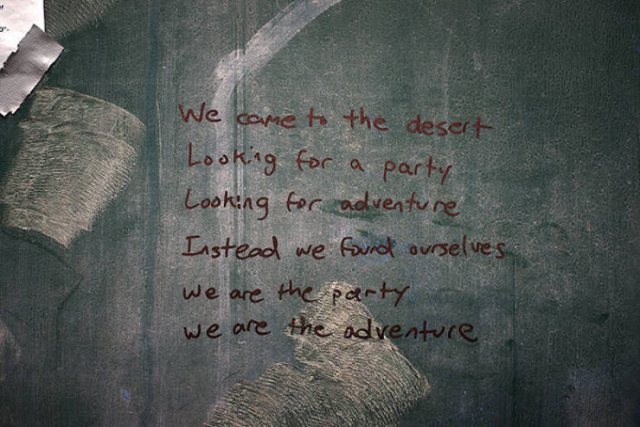 We came to the desert
Looking for a party
Looking for adventure
Instead we found ourselves
we are the party
we are the adventure